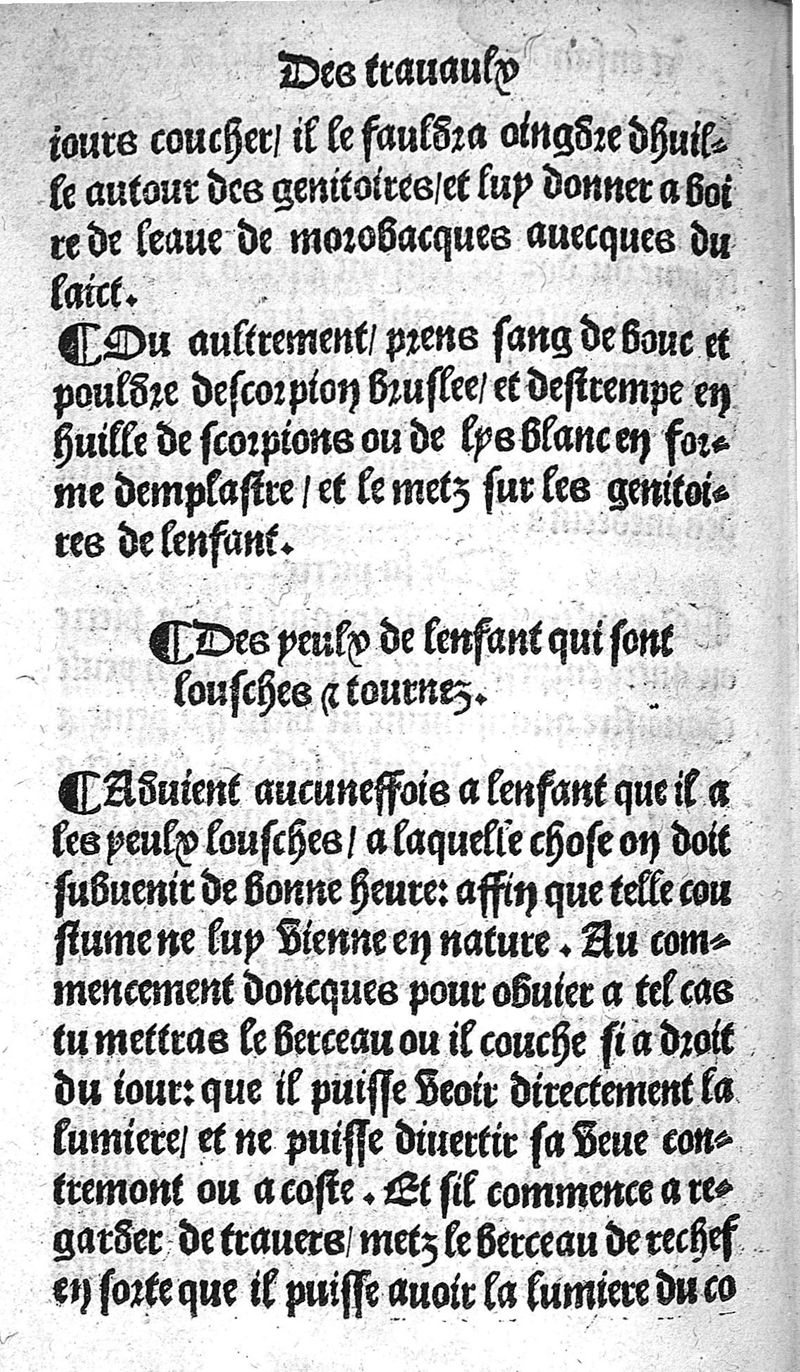 Des trauaulx
iours coucher/ il le fauldra oingdre dhuil⸗
le autour des genitoires/et luy donner a boi
re de leaue de morobacques auecques du
laict.
¶Ou aultrement/ prens sang de bouc et
pouldre descorpion bruslee/ et destrempe en
huille de scorpions ou de lys blanc en for⸗
me demplastre/ et le metz sur les genitoi⸗
res de lenfant.
¶Des yeulx de lenfant qui sont
lousches ⁊ tournez.
¶Aduient aucuneffois a lenfant que il a
les yeulx lousches/ a laquelle chose on doit
subuenir de bonne heure: affin que telle cou
stume ne luy vienne en nature. Au com⸗
mencement doncques pour obuier a tel cas
tu mettras le berceau ou il couche si a droit
du iour: que il puisse veoir directement la
lumiere/ et ne puisse diuertir sa veue con⸗
tremont ou a coste. Et sil commence a re⸗
garder de trauers/ metz le berceau de rechef
en sorte que il puisse auoir la lumiere du co